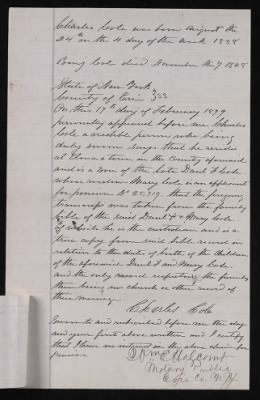 Charles Cole was born August the
24th on the 4 day of the week 1828
Cole died November the 7 1868
State of New York
County of Erie } SS
On this 17th day of February 1879
personally appeared before me Charles
Cole a credible person who being
duly sworn says that he resides
at Elma town, in the County aforesaid
and is a son of the late Daniel Cole
whose widow Mary Cole is an applicant
for pension No that the foregoing
transcript was taken from the family
bible of the said Daniel & Mary Cole
of which he is the custodian and is a
true copy from said bible record in
relation to the dates of birth of the children
of the aforesaid Daniel and Mary Cole
and the only record respecting the family
there being no church or other record of
their marriage.
Charles Cole
Sworn to and subscribed before me the day
and year first above written and I certify
that I have no interest in the above claim for
pension
Notary Public
Erie Co. N.Y.